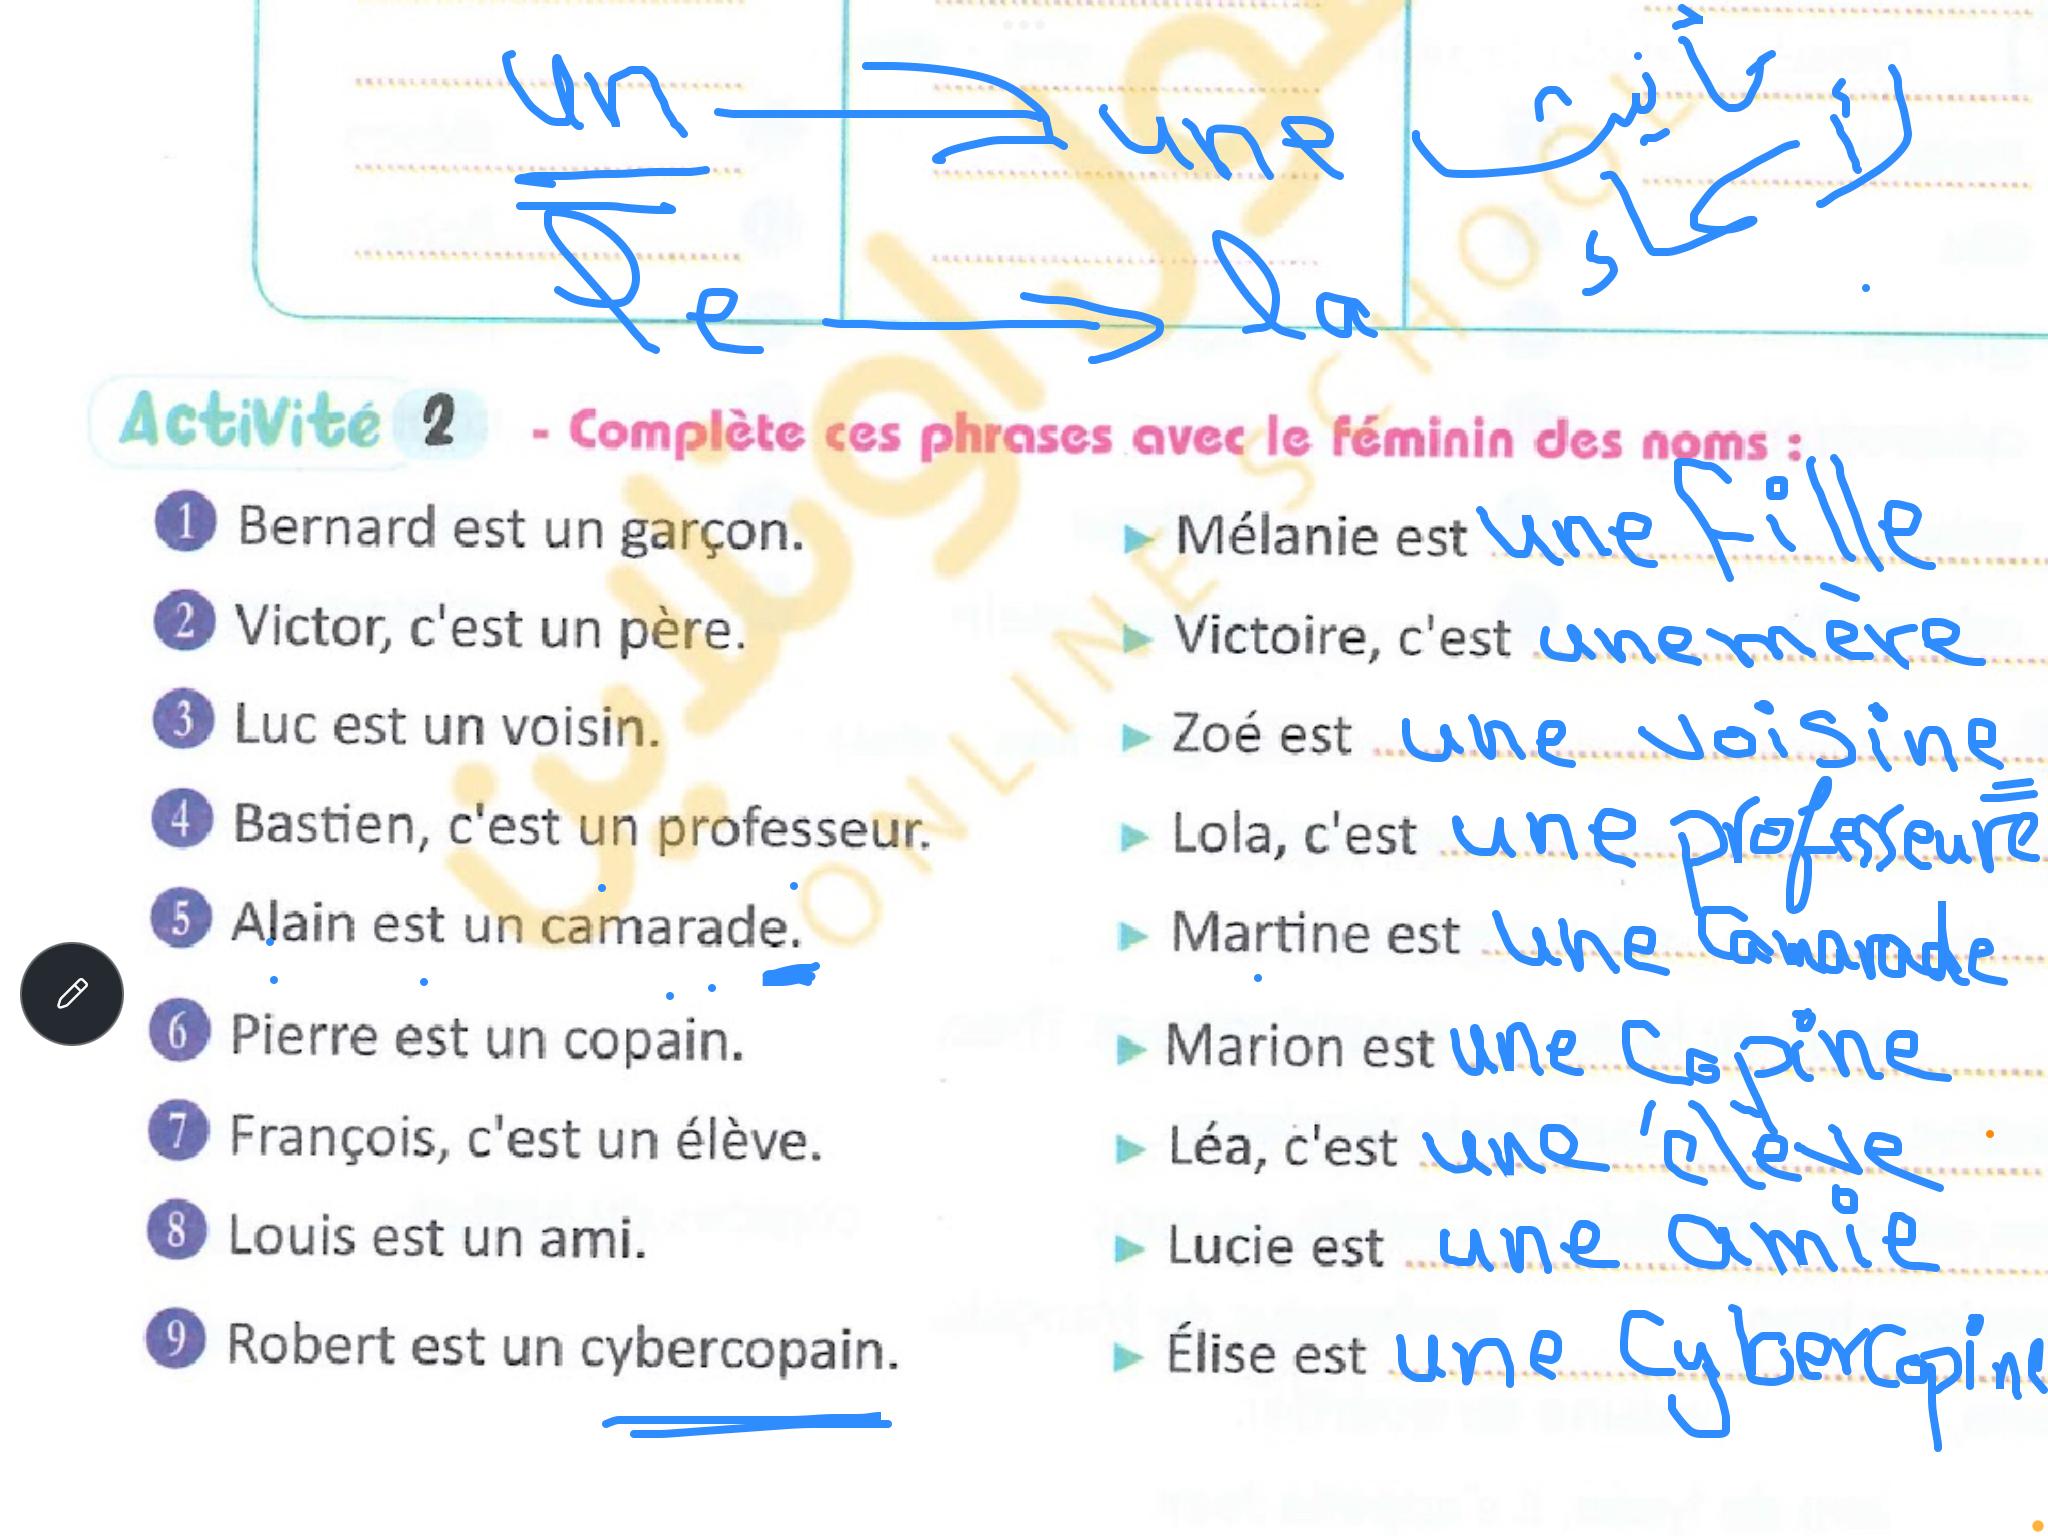 un une تأنيث الأسماء
le la
Activité 2 - Complète ces phrases avec le féminin des noms :
1 Bernard est un garçon. Mélanie est une fille
2 Victor, c'est un père. Victoire, c'est une mère
3 Luc est un voisin. Zoé est une voisine
4 Bastien, c'est un professeur. Lola, c'est une professeure
5 Alain est un camarade. Martine est une camarade
6 Pierre est un copain. Marion est une copine
7 François, c'est un élève. Léa, c'est une élève
8 Louis est un ami. Lucie est une amie
9 Robert est un cybercopain. Élise est une cybercopine
ONLINE SCHOOL